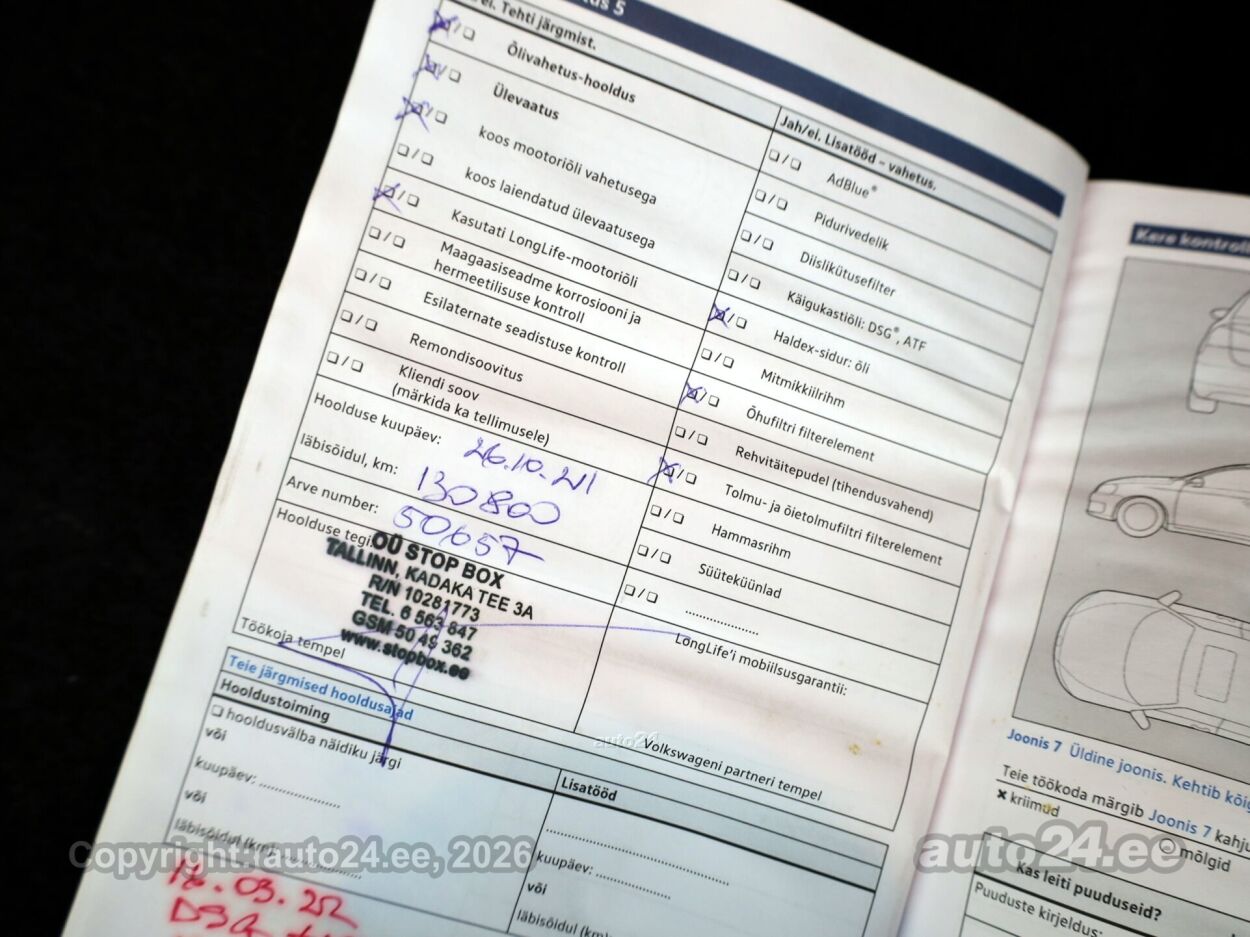 us 5
ei. Tehti järgmist.
❏ / ❏ Õlivahetus-hooldus
❏ / ❏ Ülevaatus
❏ / ❏ koos mootoriõli vahetusega
❏ / ❏ koos laiendatud ülevaatusega
❏ / ❏ Kasutati LongLife-mootoriõli
❏ / ❏ Maagaasiseadme korrosiooni ja
hermeetilisuse kontroll
❏ / ❏ Esilaternate seadistuse kontroll
❏ / ❏ Remondisoovitus
❏ / ❏ Kliendi soov
(märkida ka tellimusele)
Hoolduse kuupäev: 26.10.21
läbisõidul, km: 130800
Arve number: 501657
Hoolduse tegi:
OÜ STOP BOX
TALLINN, KADAKA TEE 3A
R/N 10281773
TEL. 6 563 847
GSM 50 49 362
www.stopbox.ee
Töökoja tempel
Jah/ei. Lisatööd – vahetus.
❏ / ❏ AdBlue®
❏ / ❏ Pidurivedelik
❏ / ❏ Diislikütusefilter
❏ / ❏ Käigukastiõli: DSG®, ATF
❏ / ❏ Haldex-sidur: õli
❏ / ❏ Mitmikkiilrihm
❏ / ❏ Õhufiltri filterelement
❏ / ❏ Rehvitäitepudel (tihendusvahend)
❏ / ❏ Tolmu- ja õietolmufiltri filterelement
❏ / ❏ Hammasrihm
❏ / ❏ Süüteküünlad
❏ / ❏ ....................
LongLife'i mobiilsusgarantii:
Volkswageni partneri tempel
Teie järgmised hooldusajad
Hooldustoiming
❏ hooldusvälba näidiku järgi
või
kuupäev: ....................
või
läbisõidul (km): ....................
Lisatööd
kuupäev: ....................
või
läbisõidul (km)
18.03.22
DSG
Kere kontroll
Joonis 7 Üldine joonis. Kehtib kõig
Teie töökoda märgib Joonis 7 kahju
✖ kriimud
mõlgid
Kas leiti puuduseid?
Puuduste kirjeldus:
auto24
Copyright auto24.ee, 2026
auto24.ee